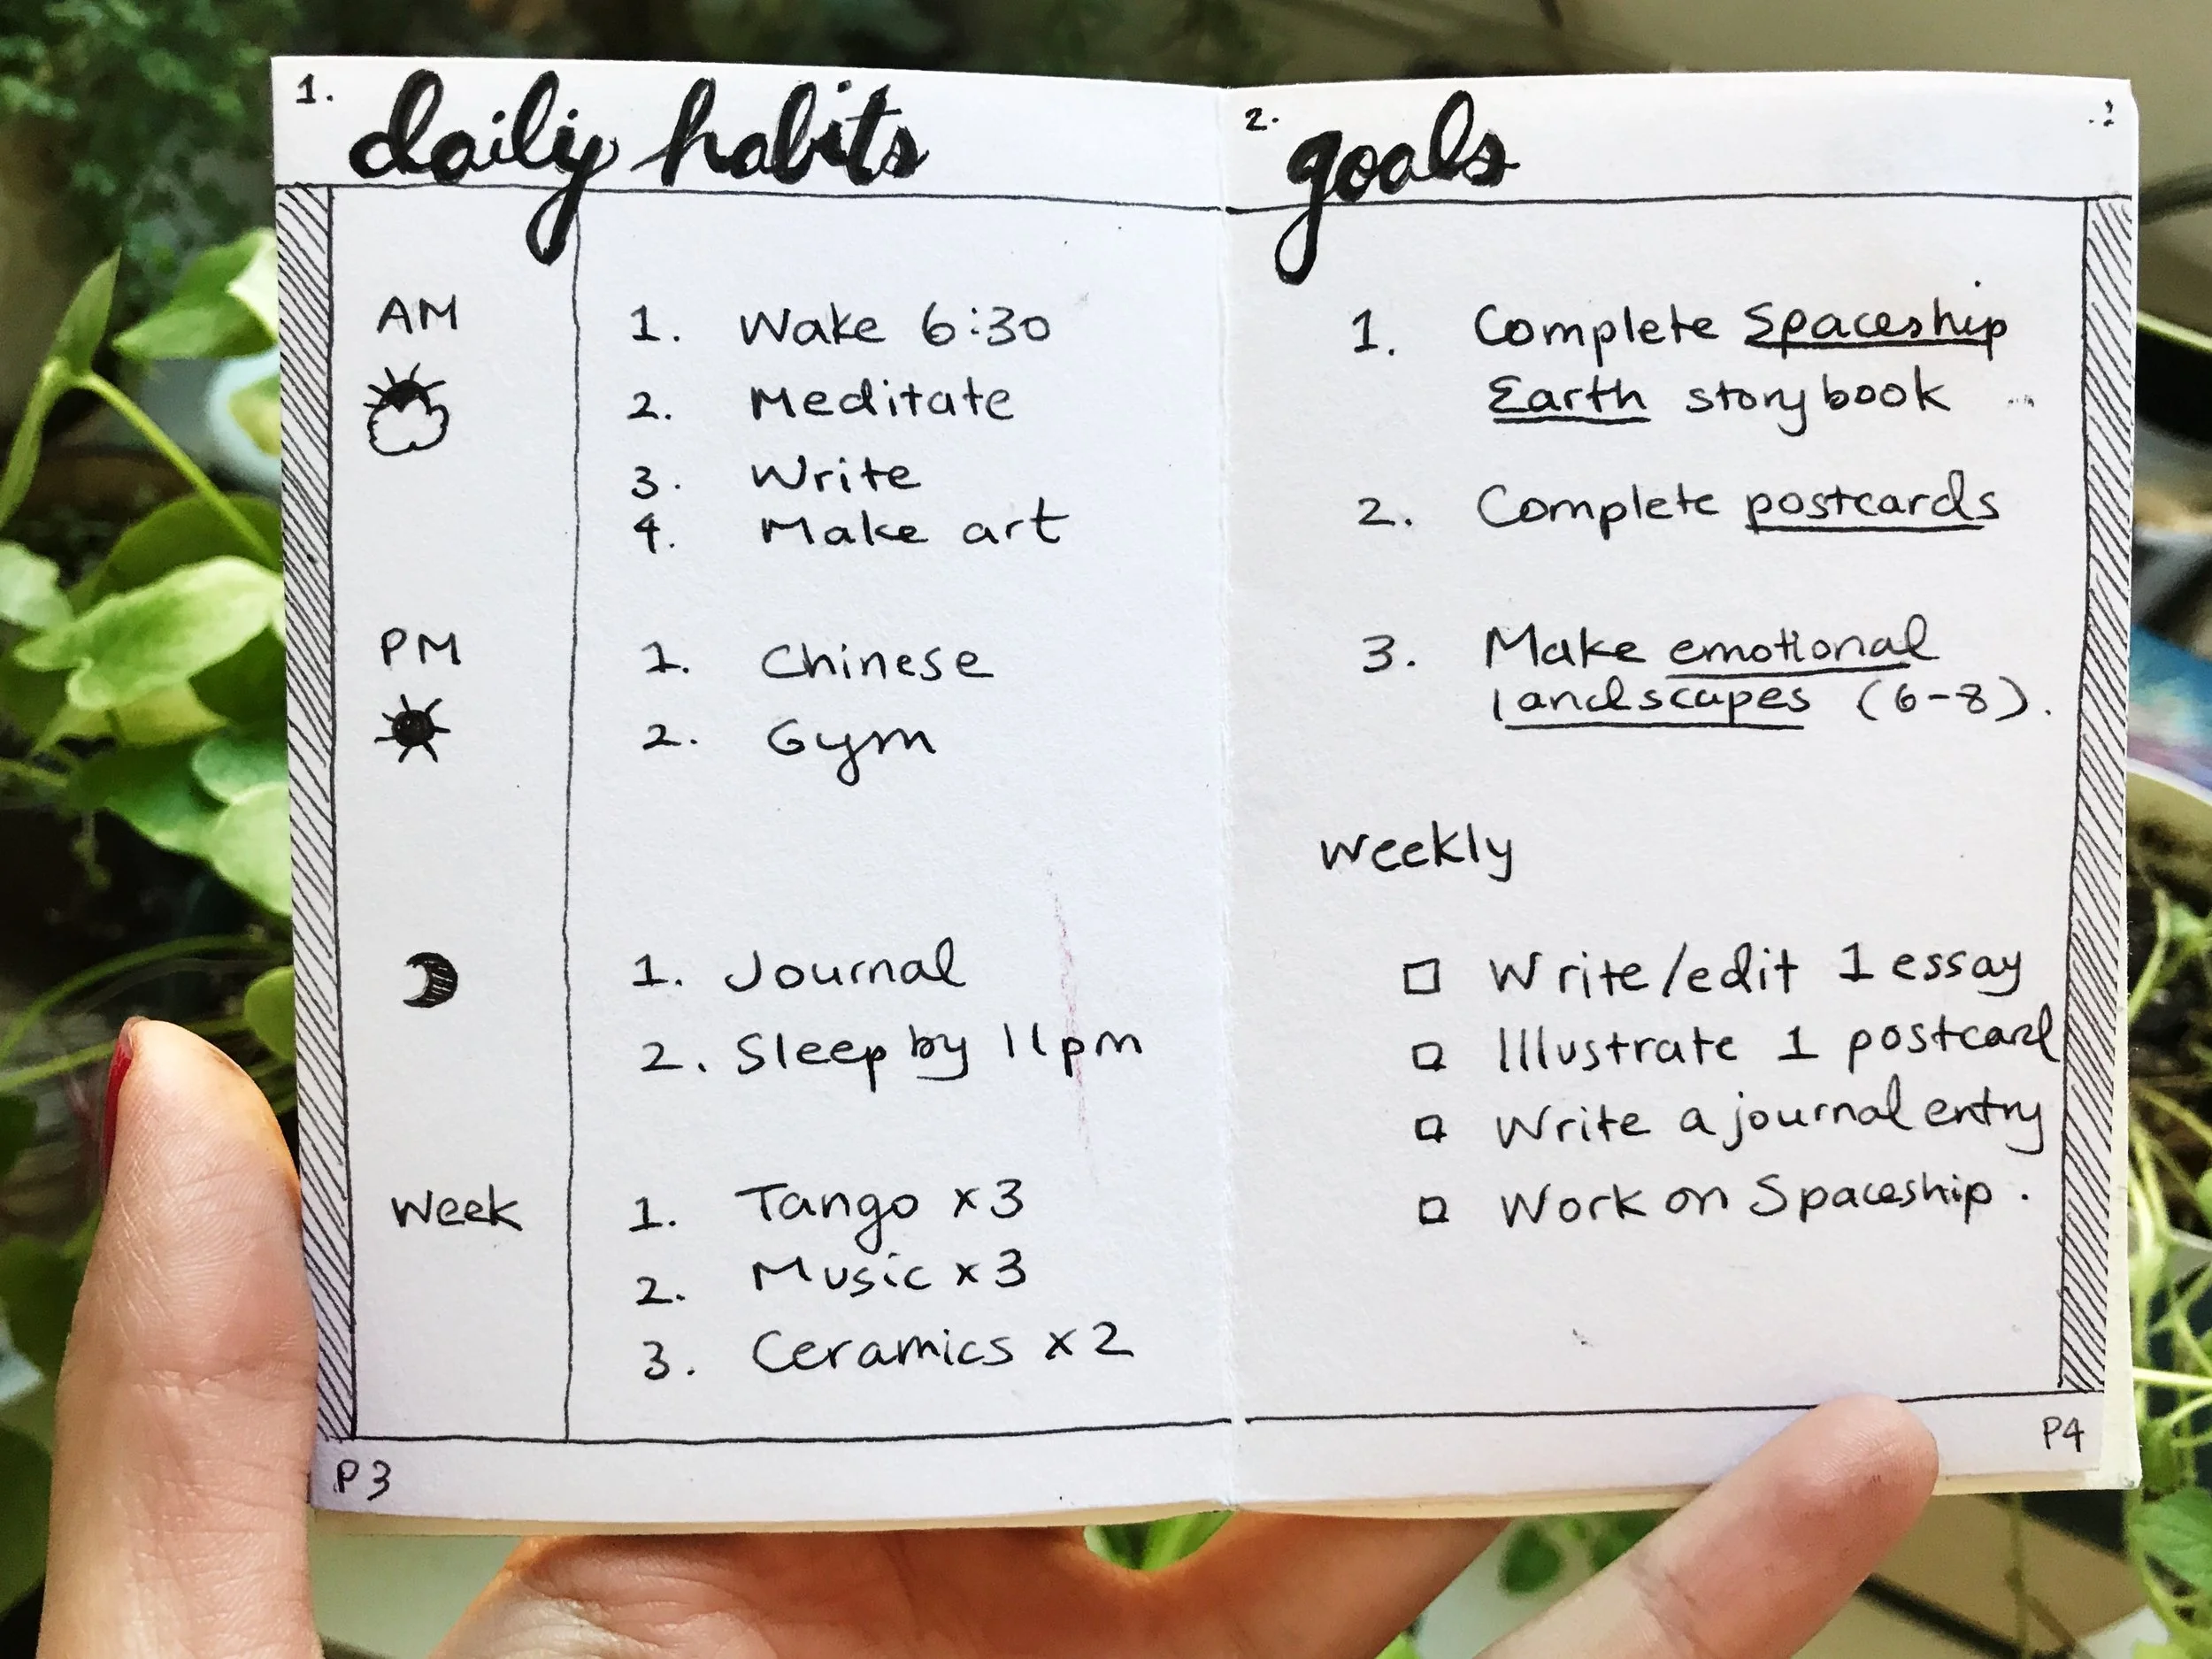 1.
daily habits
AM
1. Wake 6:30
2. Meditate
3. Write
4. Make art
PM
1. Chinese
2. Gym
1. Journal
2. Sleep by 11pm
Week
1. Tango x3
2. Music x3
3. Ceramics x2
P3
2.
goals
1. Complete Spaceship
Earth storybook
2. Complete postcards
3. Make emotional
landscapes (6-8).
weekly
Write/edit 1 essay
Illustrate 1 postcard
Write a journal entry
Work on Spaceship.
P4